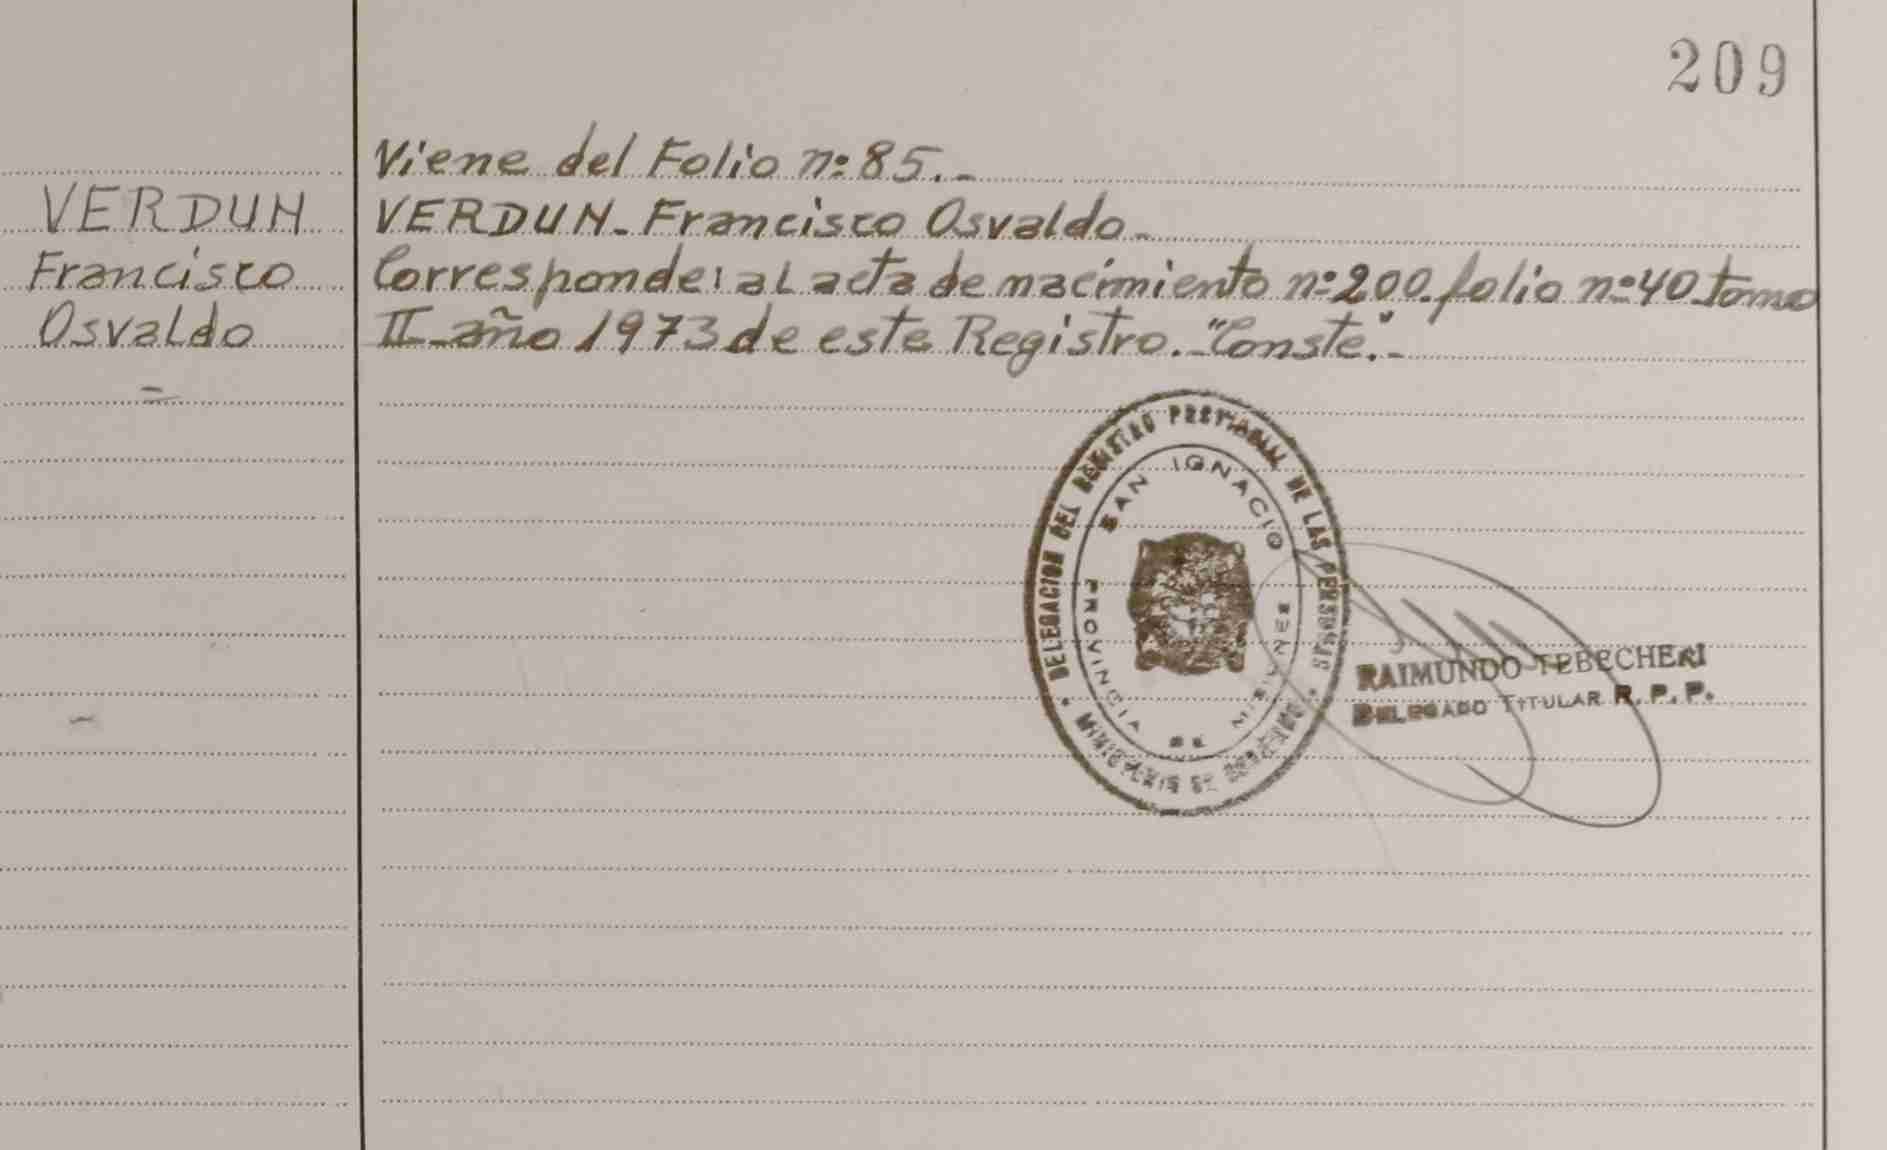 209
Viene del Folio nº 85.-
VERDUN
Francisco
Osvaldo
VERDUN - Francisco Osvaldo -
Corresponde: al acta de nacimiento nº 200. folio nº 40 tomo
II - año 1973 de este Registro. - "Conste." -
DELEGACION DEL REGISTRO PROVINCIAL DE LAS PERSONAS
SAN IGNACIO
PROVINCIA DE MISIONES
MINISTERIO DE GOBIERNO
RAIMUNDO TEBECHERI
DELEGADO TITULAR R. P. P.